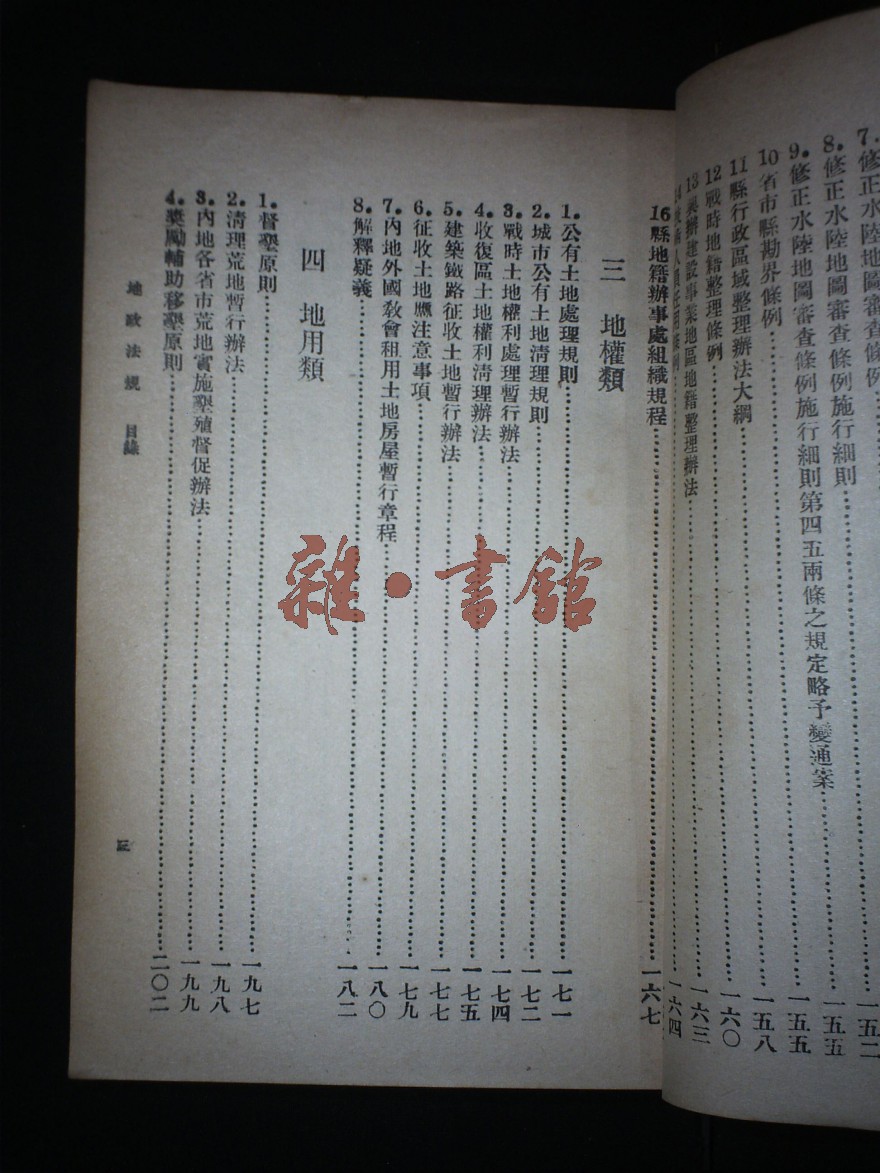 7.修正水陸地圖審查條例 一五二
8.修正水陸地圖審查條例施行細則 一五五
9.修正水陸地圖審查條例施行細則第四五兩條之規定略予變通案 一五五
10省市縣勘界條例 一五八
11縣行政區域整理辦法大綱 一六〇
12戰時地籍整理條例 一六三
13興辦建設事業地區地籍整理辦法 一六四
16縣地籍辦事處組織規程 一六七
三 地權類
1.公有土地處理規則 一七一
2.城市公有土地清理規則 一七二
3.戰時土地權利處理暫行辦法 一七四
4.收復區土地權利清理辦法 一七五
5.建築鐵路征收土地暫行辦法 一七七
6.征收土地應注意事項 一七九
7.內地外國敎會租用土地房屋暫行章程 一八〇
8.解釋疑義 一八二
四 地用類
1.督墾原則 一九七
2.淸理荒地暫行辦法 一九八
3.內地各省市荒地實施墾殖督促辦法 一九九
4.奬勵輔助移墾原則 二〇二
地政法規 目錄
三
雜·書館